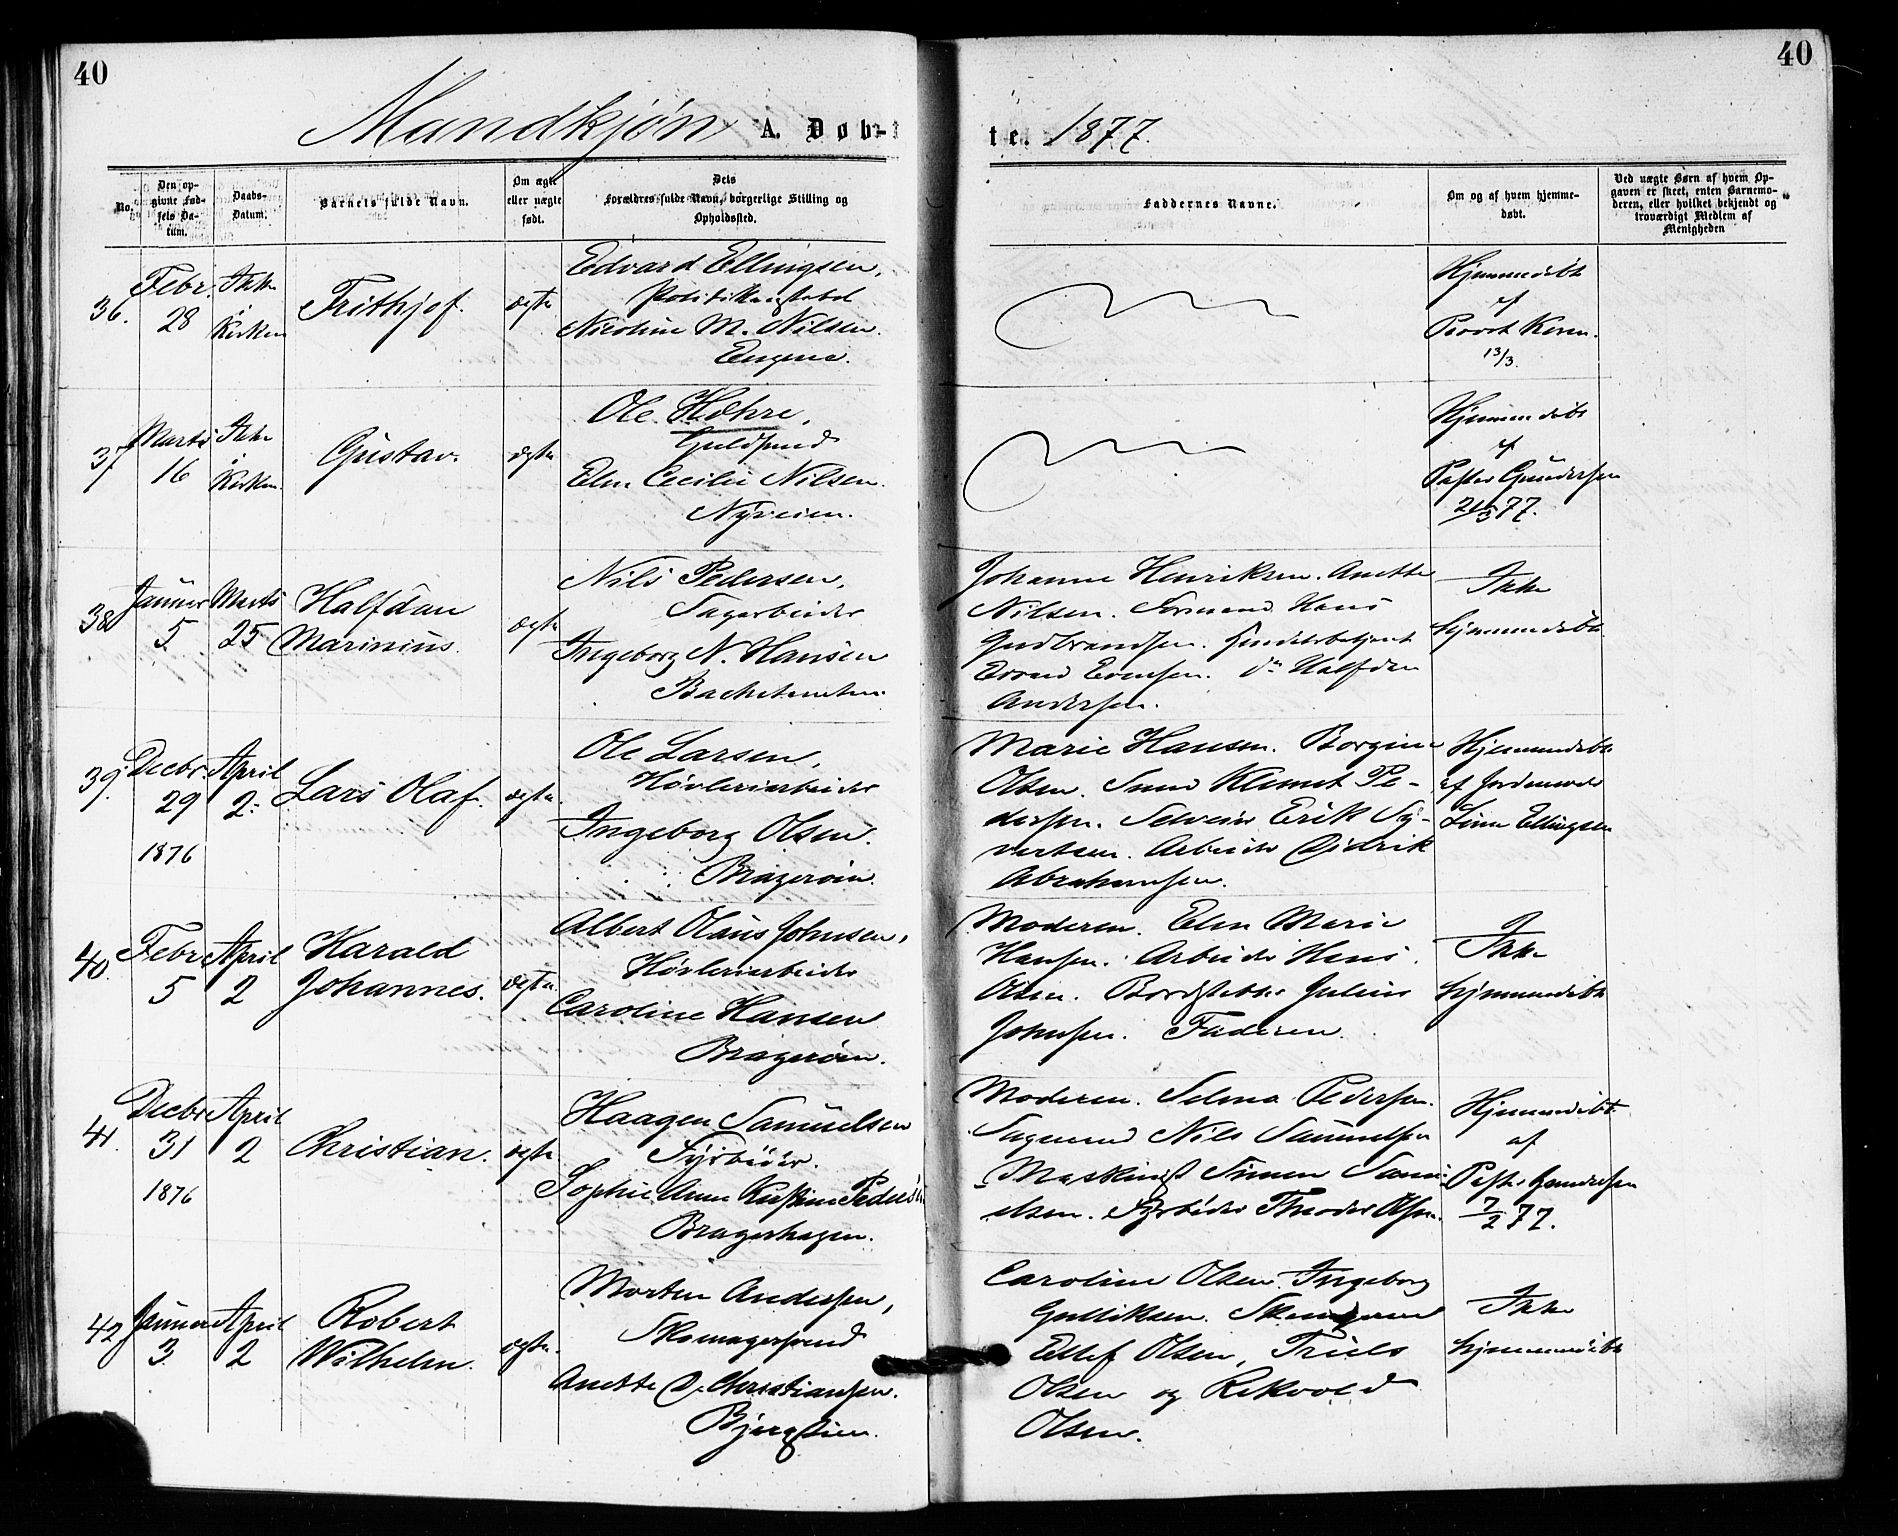 40
Mandkjøn A. Døb-
No.
Den op-
givne Fød-
sels Da-
tum.
Daabs-
Datum.
Barnets fulde Navn.
Om ægte
eller uægte
født.
Dets
Forældres fulde Navn, borgerlige Stilling og
Opholdssted.
36.
Febr.
28
Ikke
i
Kirken
Frithjof.
ægte
Edvard Ellingsen,
Politikonstabel
Nicoline M. Nilsen.
Engene.
37
Marts
16
Ikke
i
Kirken.
Gustav.
ægte
Ole Hæhre,
Guldsmed
Elen Cecilie Nilsen.
Nyveien.
38
Januar
5
Marts
25
Halfdan
Marinius.
ægte
Nils Pedersen,
Sagarbeider
Ingeborg N. Hansen
39.
Decbr
29
1876
April
2.
Lars Olaf.
ægte.
Ole Larsen,
Høvleriarbeider
Ingeborg Olsen.
Bragerøen.
40.
Febr
5
April
2
Harald
Johannes.
ægte.
Albert Olaus Johnsen,
Høvleriarbeider
Caroline Hansen
Bragerøen.
41.
Decbr
31
1876
April
2
Christian.
ægte
Haagen Samuelsen
Fyrbøder.
Sophie Anne Kirstine Pedersen
Bragerhagen.
42
Januar
3.
April
2
Robert
Wilhelm.
ægte.
Morten Andersen,
Skomagersvend
Anette D. Christiansen.
Bjergstien.
40
te. 1877.
Faddernes Navne.
Om og af hvem hjemme-
døbt.
Ved uægte Børn af hvem Op-
gaven er skeet, enten Barnemo-
deren, eller hvilket bekjendt og
troværdigt Medlem af
Menigheden
Hjemmedøbt
af
Provst Keren.
13/3.
Hjemmedøbt
af
Pastor Gundersen
77.
Johanne Henriksen. Anette
Nilsen. Formand Hans
Gudbrandsen. Handelsbetjent
Do Halfdan
Andersen.
Ikke
hjemmedøbt
Marie Hansen. Borgine
Olsen. Smed Klemet Pe-
dersen. Selveier Erik Sy-
vertsen. Arbeider Didrik
Abrahamsen.
Hjemmedøbt
af Jordemoder
Line Ellingsen
Moderen. Elen Marie
Hansen. Arbeider Hans
Olsen. Bordstabler Julius
Johnsen. Faderen.
Ikke
hjemmedøbt
Moderen. Selma Pedersen.
Sagmand Nils Samuelsen
Maskinist Simen Samu-
elsen. Fyrbøder Theodor Olsen.
Hjemmedøbt
af
Pastor Gundersen
7/2 77.
Caroline Olsen. Ingeborg
Gulliksen.
Ellef Olsen, Truls
Olsen og Rikvold
Olsen.
Ikke
hjemmedøbt